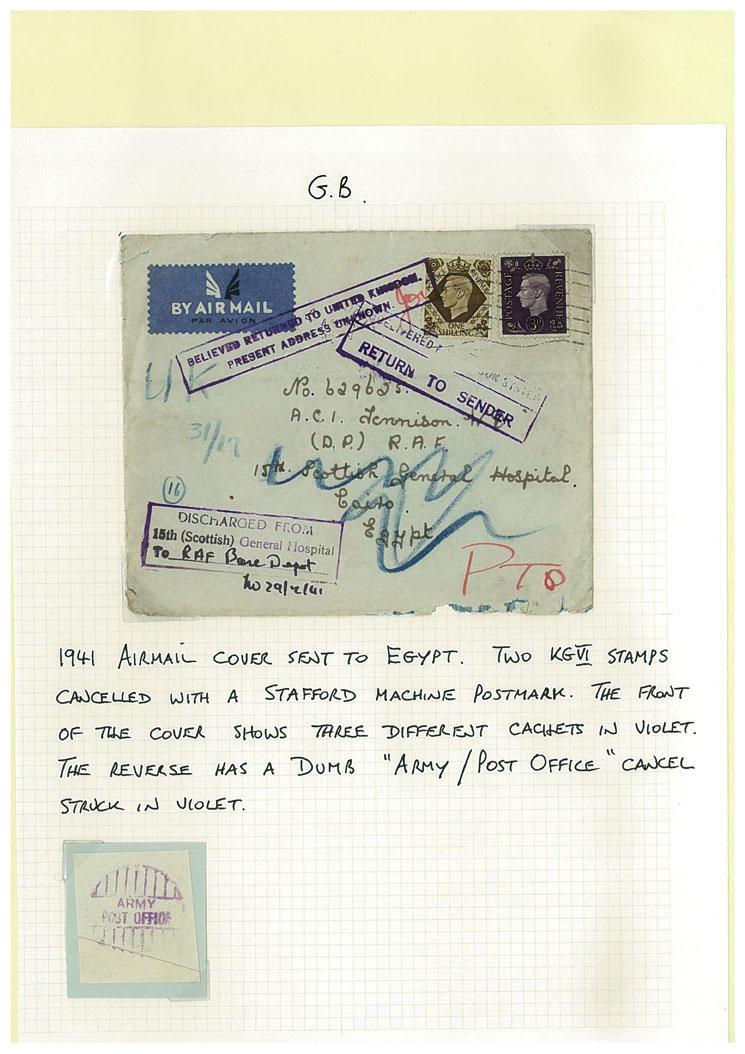 G.B.
BY AIR MAIL
PAR AVION
BELIEVED RETURNED TO UNITED KINGDOM.
PRESENT ADDRESS UNKNOWN.
ONE SHILLING
POSTAGE
REVENUE
3D
DELIVERED
RETURN TO SENDER
UK
31/12
No. 629625.
A.C.1. Tennison.
(D.P.) R.A.F
15th Scottish General Hospital.
Cairo
Egypt
16
DISCHARGED FROM
15th (Scottish) General Hospital
To RAF Base Depot
PTO
1941 AIRMAIL COVER SENT TO EGYPT. TWO KGVI STAMPS
CANCELLED WITH A STAFFORD MACHINE POSTMARK. THE FRONT
OF THE COVER SHOWS THREE DIFFERENT CACHETS IN VIOLET.
THE REVERSE HAS A DUMB "ARMY/POST OFFICE" CANCEL
STRUCK IN VIOLET.
ARMY
POST OFFICE